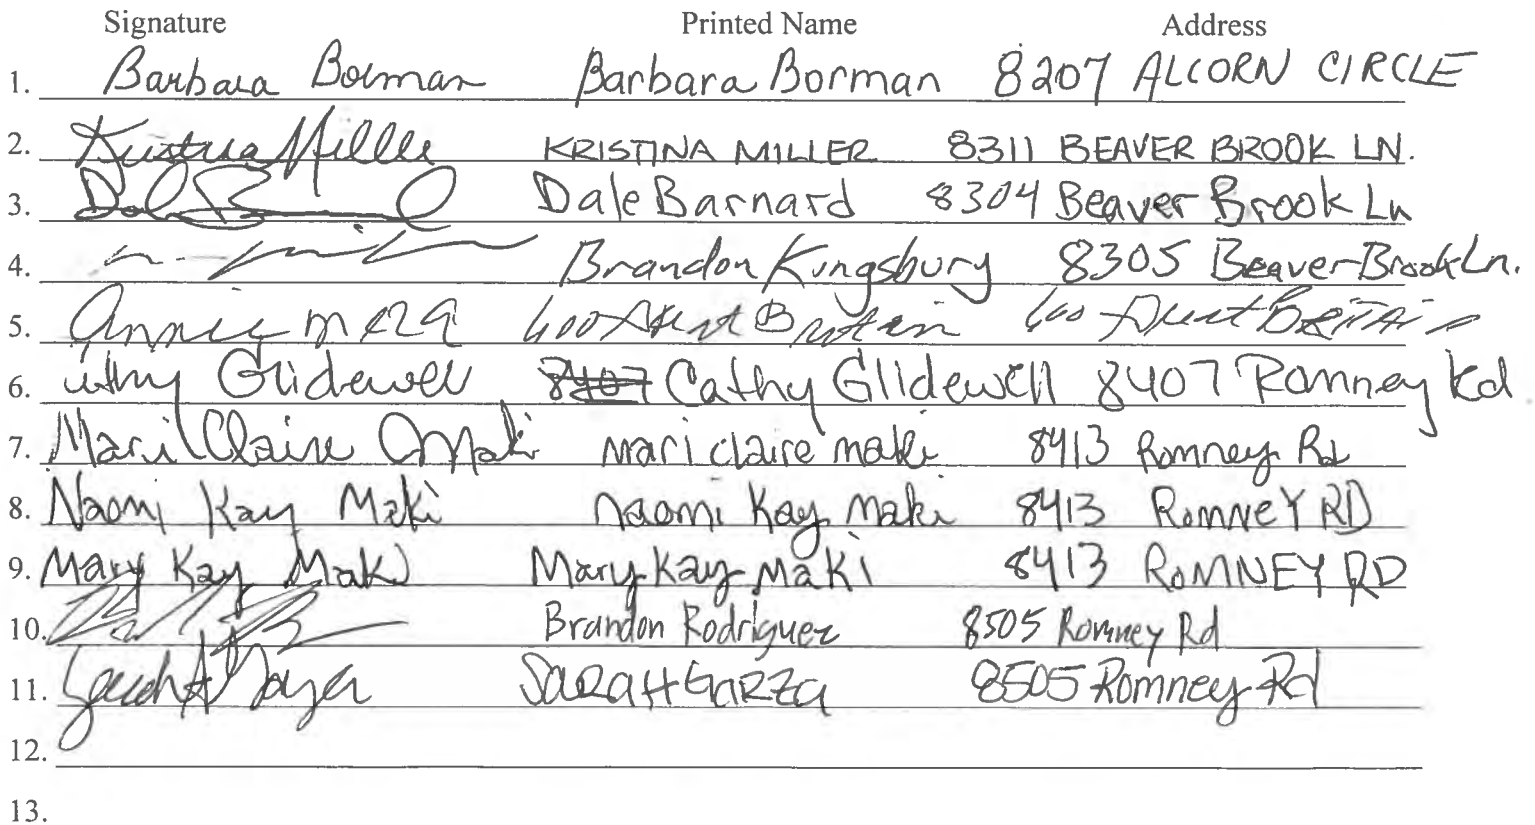 Signature Printed Name Address
1. Barbara Borman Barbara Borman 8207 ALCORN CIRCLE
2. Kristina Miller KRISTINA MILLER 8311 BEAVER BROOK LN.
3. Dale Barnard 8304 Beaver Brook Ln
4. Brandon Kingsbury 8305 Beaver Brook Ln.
5. Annie 600 Britain 600 BRITAIN
6. Cathy Glidewell Cathy Glidewell 8407 Romney Rd
7. Mari Claire Maki mari claire maki 8413 Romney Rd
8. Naomi Kay Maki naomi Kay maki 8413 RomNeY RD
9. Mary Kay Maki Mary Kay MaKi 8413 RoMNEY RD
10. Brandon Rodriguez 8505 Romney Rd
11. Sarah A Garza SARAH GARZA 8505 Romney Rd
12.
13.